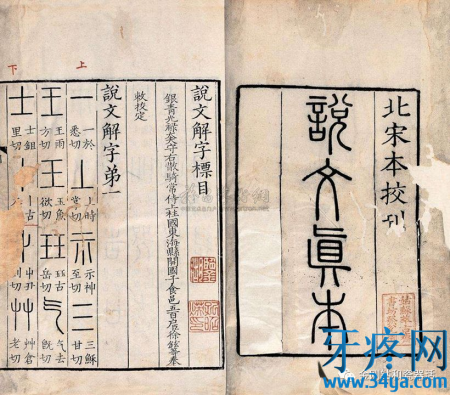 北宋本校刊
說文眞本
說文解字標目
銀青光祿大夫守右散騎常侍上柱國東海縣開國子食邑五百戶臣徐鉉等奉
敕校定
說文解字第一
上
一 一於悉切 丄 上時掌切 示 示神至切 三 三穌甘切
王 王雨方切 玉 玉魚欲切 玨 玨古岳切 气 气去旣切
士 士鉏里切 丨 丨古 屮 屮丑列切 艸 艸倉老切
下
牙疼网
www.34ya.com